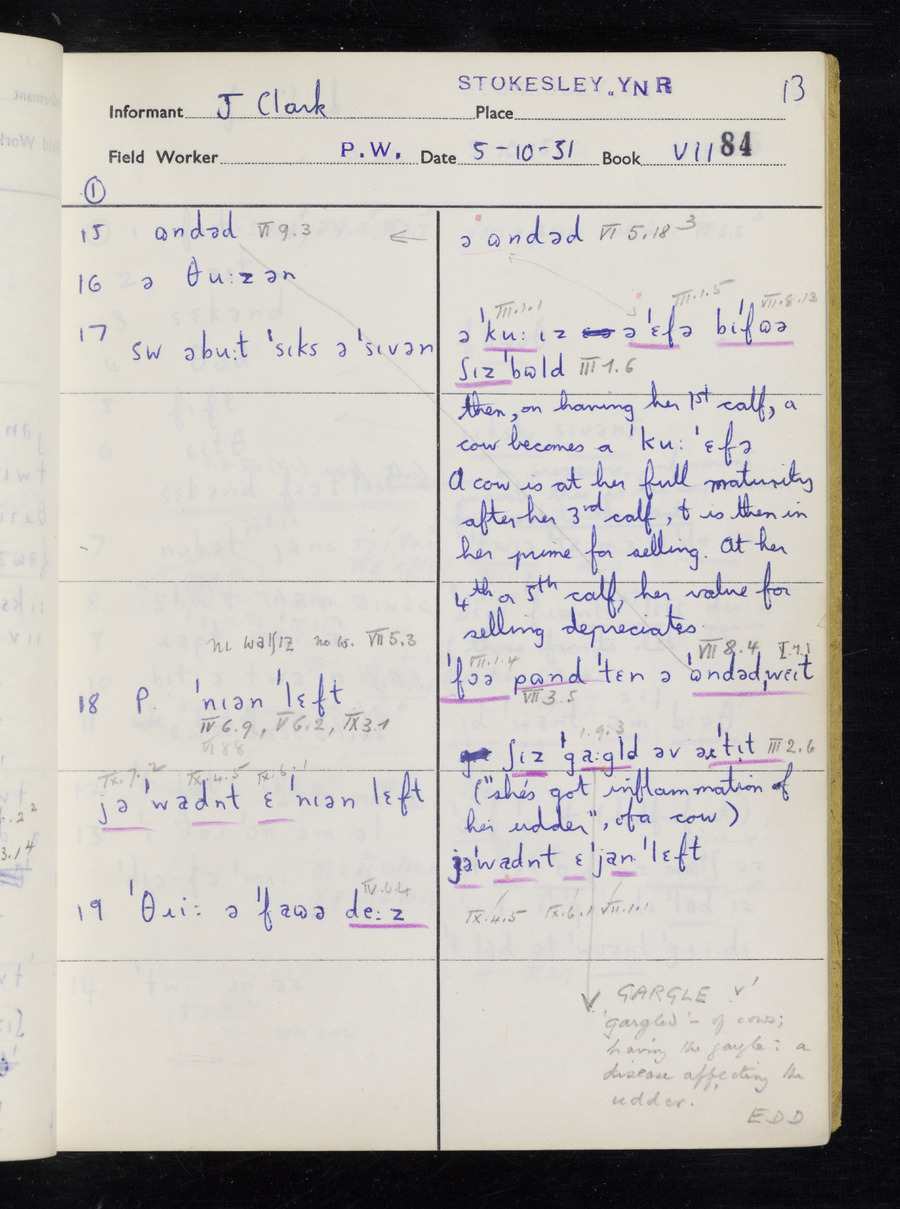 STOKESLEY. YNR
13
Informant J Clark Place
Field Worker P.W. Date 5-10-51 Book VII 84
①
15 ɒndəd VI 9.3
16 ə θu:zən
17 sw əbu:t 'sɪks ə 'sɪvən
nɪ walʃɪz no w. VII 5.3
18 P. 'nɪən 'lɛft
IV 6.9, V 6.2, IX 3.1
VI 8 8
IX.9.2 IX.4.5 IX.6.1
jə 'wadnt ɛ 'nɪən lɛft
IV.6.2
19 'θɹi: ə 'fawə de:z
ə ɒndəd VI 5.18 3
III.1.1 III.1.5 VII.8.13
ə 'ku: ɪz ə 'ɛfə bɪ'fɒə
ʃɪz 'bɒld III 1.6
then, on having her 1st calf, a
cow becomes a 'ku: 'ɛfə
A cow is at her full maturity
after her 3rd calf, & is then in
her prime for selling. At her
4th or 5th calf, her value for
selling depreciates.
VII.1.4 VII 8.4 I.7.1
'fɔə pɒnd 'tɛn ə 'ɒndəd,weɪt
VII 3.5
1.9.3
ʃɪz 'ga:gld əv əɪ 'tɪt III 2.6
("she's got inflammation of
her udder", of a cow)
jə 'wadnt ɛ 'jan 'lɛft
IX.4.5 IX.6.1 VII.1.1
GARGLE v'
'gargled' - of cows;
having the gargle: a
disease affecting the
udder.
EDD